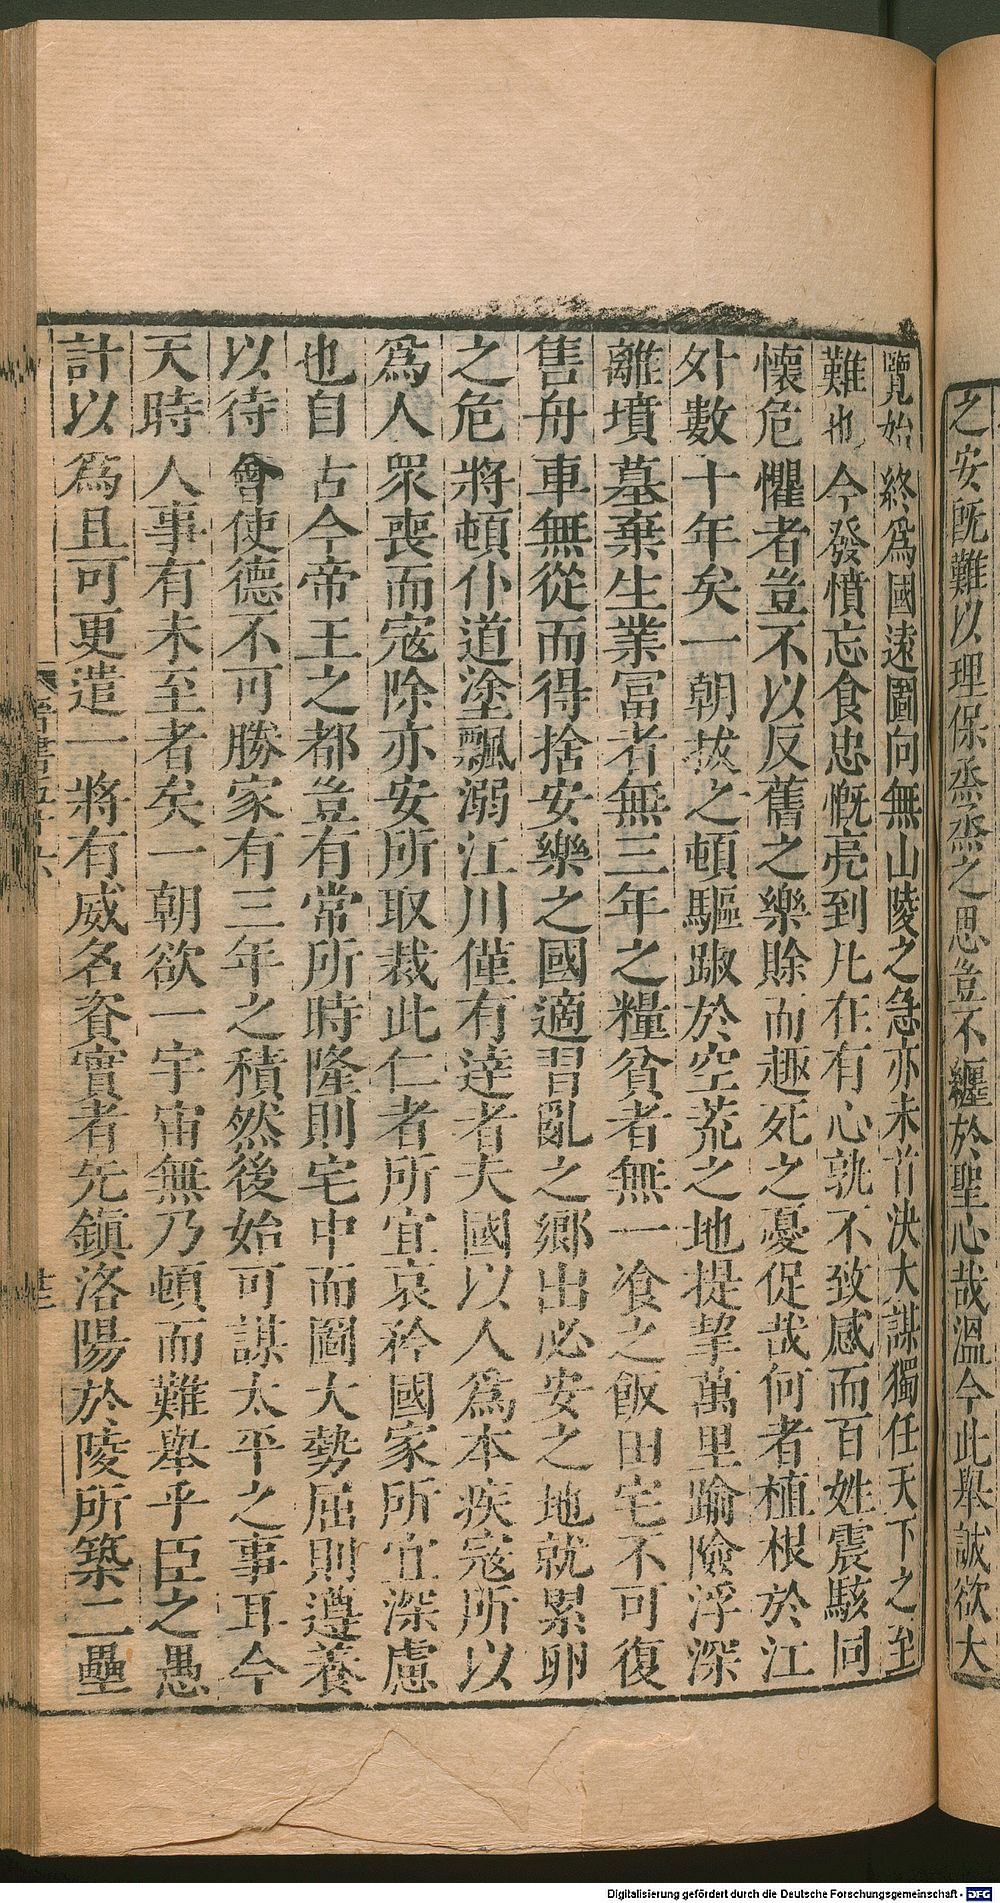 之安既難以理保烝烝之思豈不纏於聖心哉溫今此舉誠欲大
覽始終爲國遠圖向無山陵之急亦未首決大謀獨任天下之至
難也今發憤忘食忠慨亮到凡在有心孰不致感而百姓震駭同
懷危懼者豈不以反舊之樂賒而趣死之憂促哉何者植根於江
外數十年矣一朝拔之頓驅踧於空荒之地提挈萬里踰險浮深
離墳墓棄生業富者無三年之糧貧者無一飡之飯田宅不可復
售舟車無從而得捨安樂之國適習亂之鄉出必安之地就累卵
之危將頓仆道塗飄溺江川僅有達者夫國以人爲本疾寇所以
爲人衆喪而寇除亦安所取裁此仁者所宜哀矜國家所宜深慮
也自古今帝王之都豈有常所時隆則宅中而圖大勢屈則遵養
以待會使德不可勝家有三年之積然後始可謀太平之事耳今
天時人事有未至者矣一朝欲一宇宙無乃頓而難舉乎臣之愚
計以爲且可更遣一將有威名資實者先鎮洛陽於陵所築二壘
晉書五十六
Digitalisierung gefördert durch die Deutsche Forschungsgemeinschaft - DFG